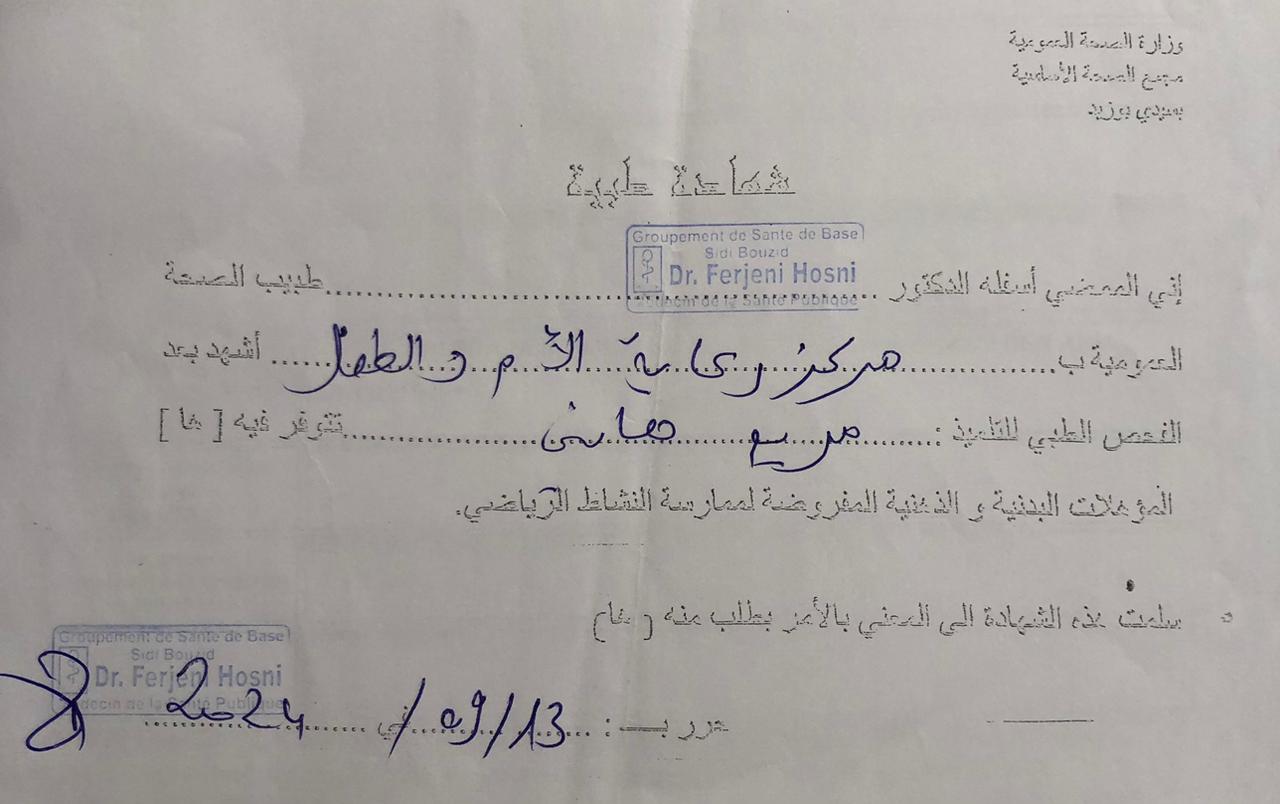 وزارة الصحة العمومية
مجمع الصحة الأساسية
بسيدي بوزيد
شهادة طبية
Groupement de Sante de Base
Sidi Bouzid
Dr. Ferjeni Hosni
Médecin de la Santé Publique
إني الممضي أسفله الدكتور ........................ طبيب الصحة
العمومية ب............ مركز رعاية الأم والطفل ..... أشهد بعد
الفحص الطبي للتلميذ : ........ مريم هاني ................تتوفر فيه [ ها ]
المؤهلات البدنية و الذهنية المفروضة لممارسة النشاط الرّياضي.
سلمت هذه الشهادة الى المعني بالأمر بطلب منه ( ها)
Groupement de Sante de Base
Sidi Bouzid
Dr. Ferjeni Hosni
Médecin de la Santé Publique
حرر بـ : ......... في ......... 13/09/2024